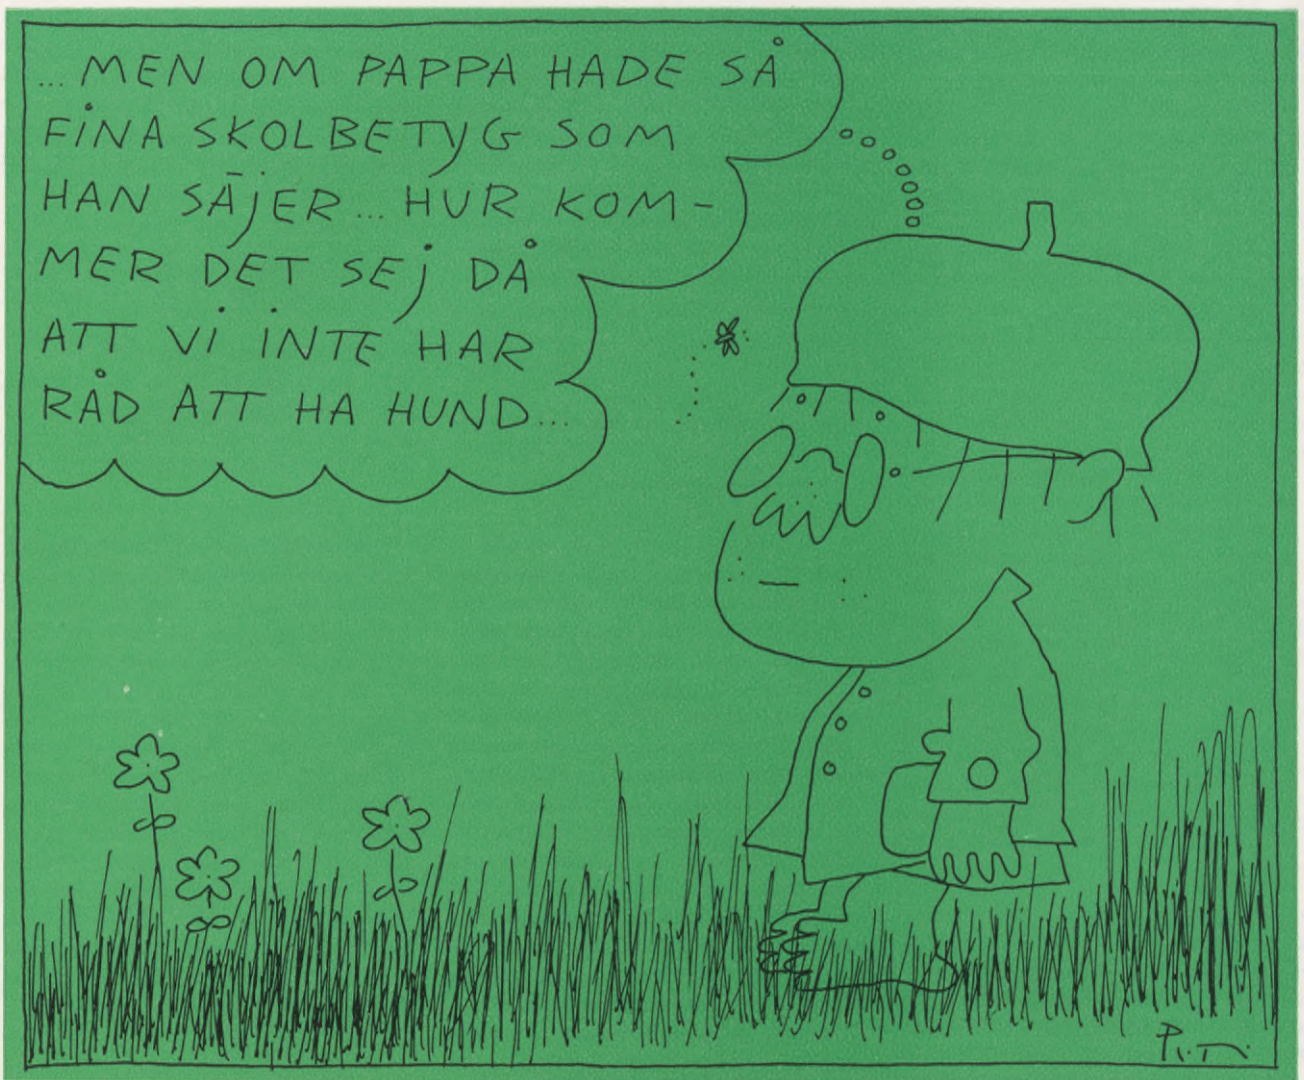 ... MEN OM PAPPA HADE SÅ
FINA SKOLBETYG SOM
HAN SÄJER ... HUR KOM-
MER DET SEJ DÅ
ATT VI INTE HAR
RÅD ATT HA HUND ...